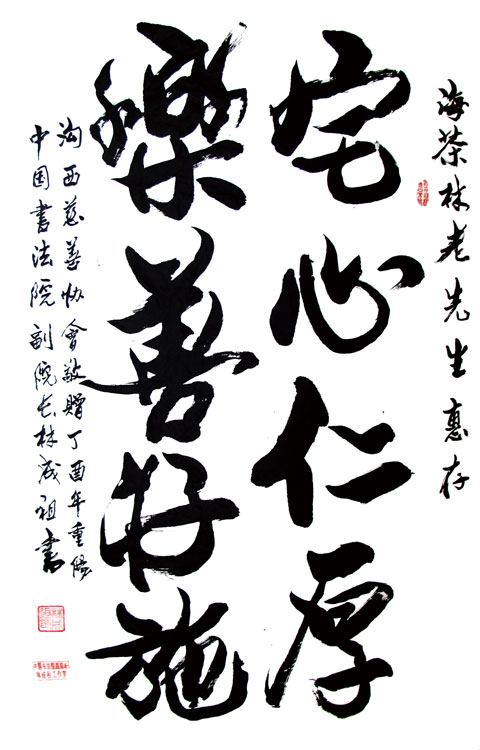 海茶林老先生惠存
宅心仁厚
樂善好施
沟西慈善协會敬贈丁酉年重陽
中国書法院副院长林成祖書